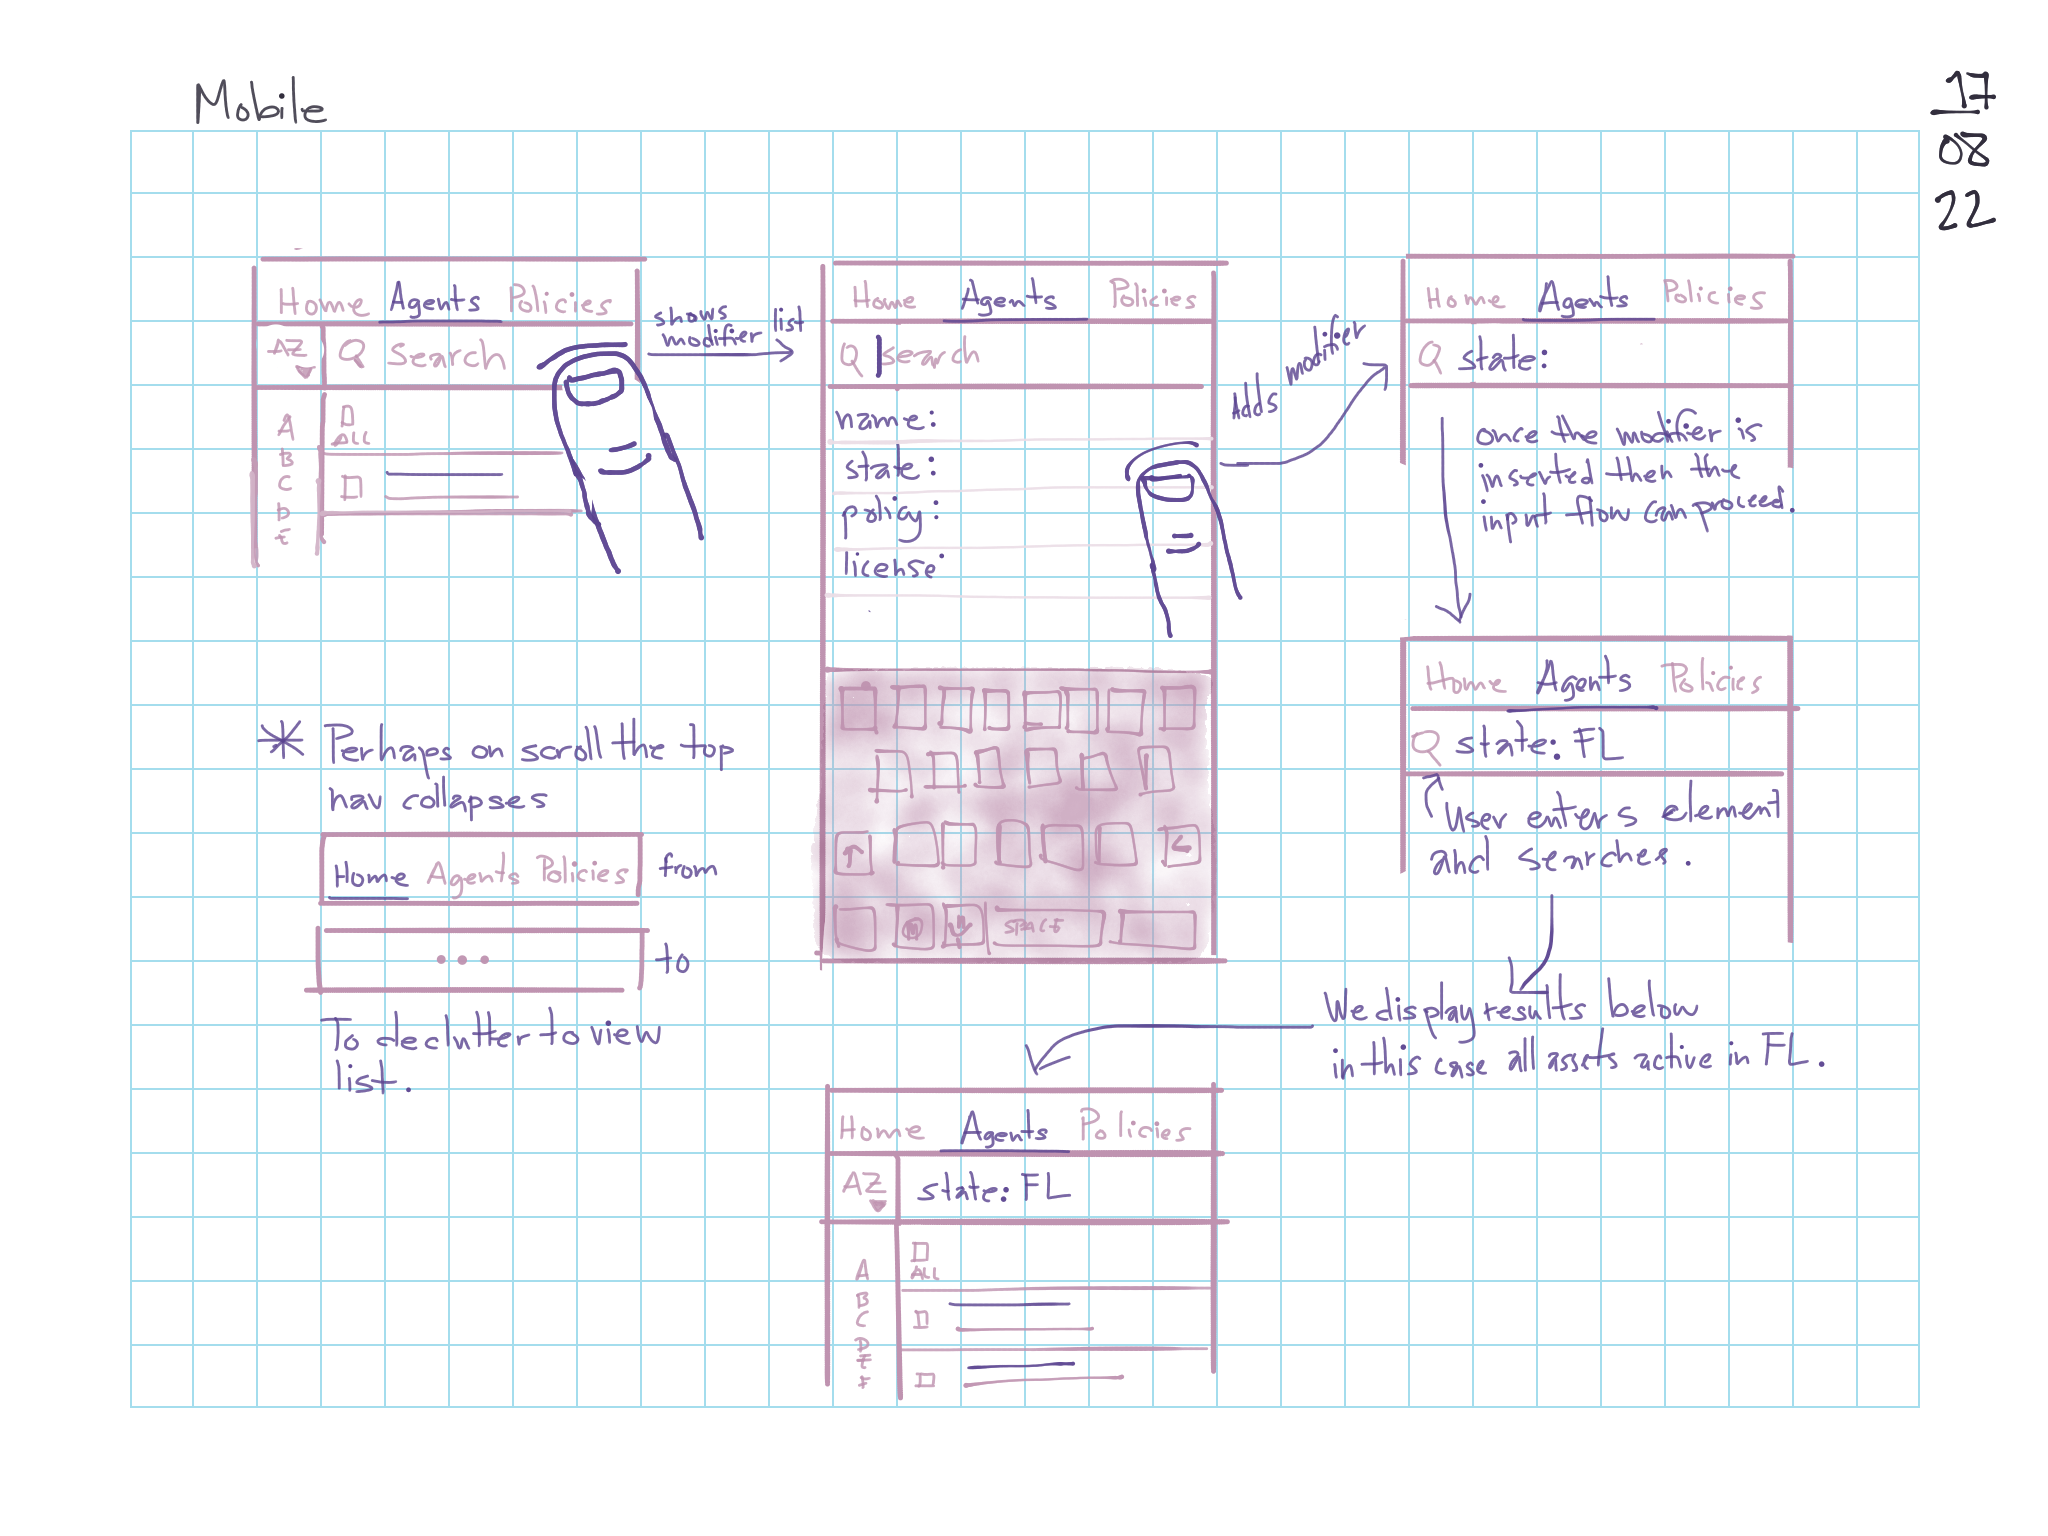 Mobile
17
08
22
Home Agents Policies
AZ Search
A
B
C
D
E
ALL
shows
modifier list
Home Agents Policies
search
name:
state:
policy:
license
SPACE
Adds modifier
Home Agents Policies
state:
once the modifier is
inserted then the
input flow can proceed.
Home Agents Policies
state: FL
User enters element
and searches.
We display results below
in this case all assets active in FL.
Home Agents Policies
AZ state: FL
A
B
C
D
E
F
ALL
* Perhaps on scroll the top
nav collapses
Home Agents Policies from
... to
To declutter to view
list.